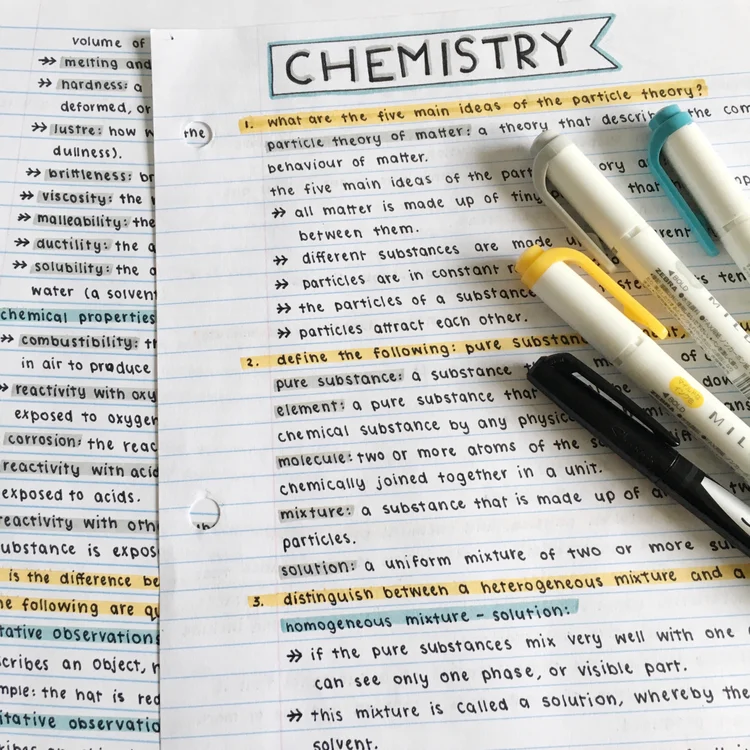 volume of
melting and
hardness: a
deformed, or
lustre: how
dullness).
brittleness: br
viscosity: the
malleability: the
ductility: the
solubility: the
water (a solven
chemical properties
combustibility:
in air to produce
reactivity with oxy
exposed to oxygen
corrosion: the reac
reactivity with acid
exposed to acids.
reactivity with oth
ubstance is expos
is the difference be
he following are qu
tative observations
scribes an object,
mple: the hat is red
itative observatio
CHEMISTRY
the
1. what are the five main ideas of the particle theory?
particle theory of matter: a theory that describ the com
behaviour of matter.
the five main ideas of the part ory
all matter is made up of tiny that
between them.
different substances are made u erent
particles are in constant
the particles of a substance
particles attract each other.
2. define the following: pure substanc
pure substance: a substance
element: a pure substance that dow
chemical substance by any physica
molecule: two or more atoms of the
chemically joined together in a unit.
mixture: a substance that is made up of
particles.
solution: a uniform mixture of two or more su
3. distinguish between a heterogeneous mixture and a
homogeneous mixture - solution:
if the pure substances mix very well with one
can see only one phase, or visible part.
this mixture is called a solution, whereby the
solvent.
ZEBRA
BOLD
MIL
BOLD